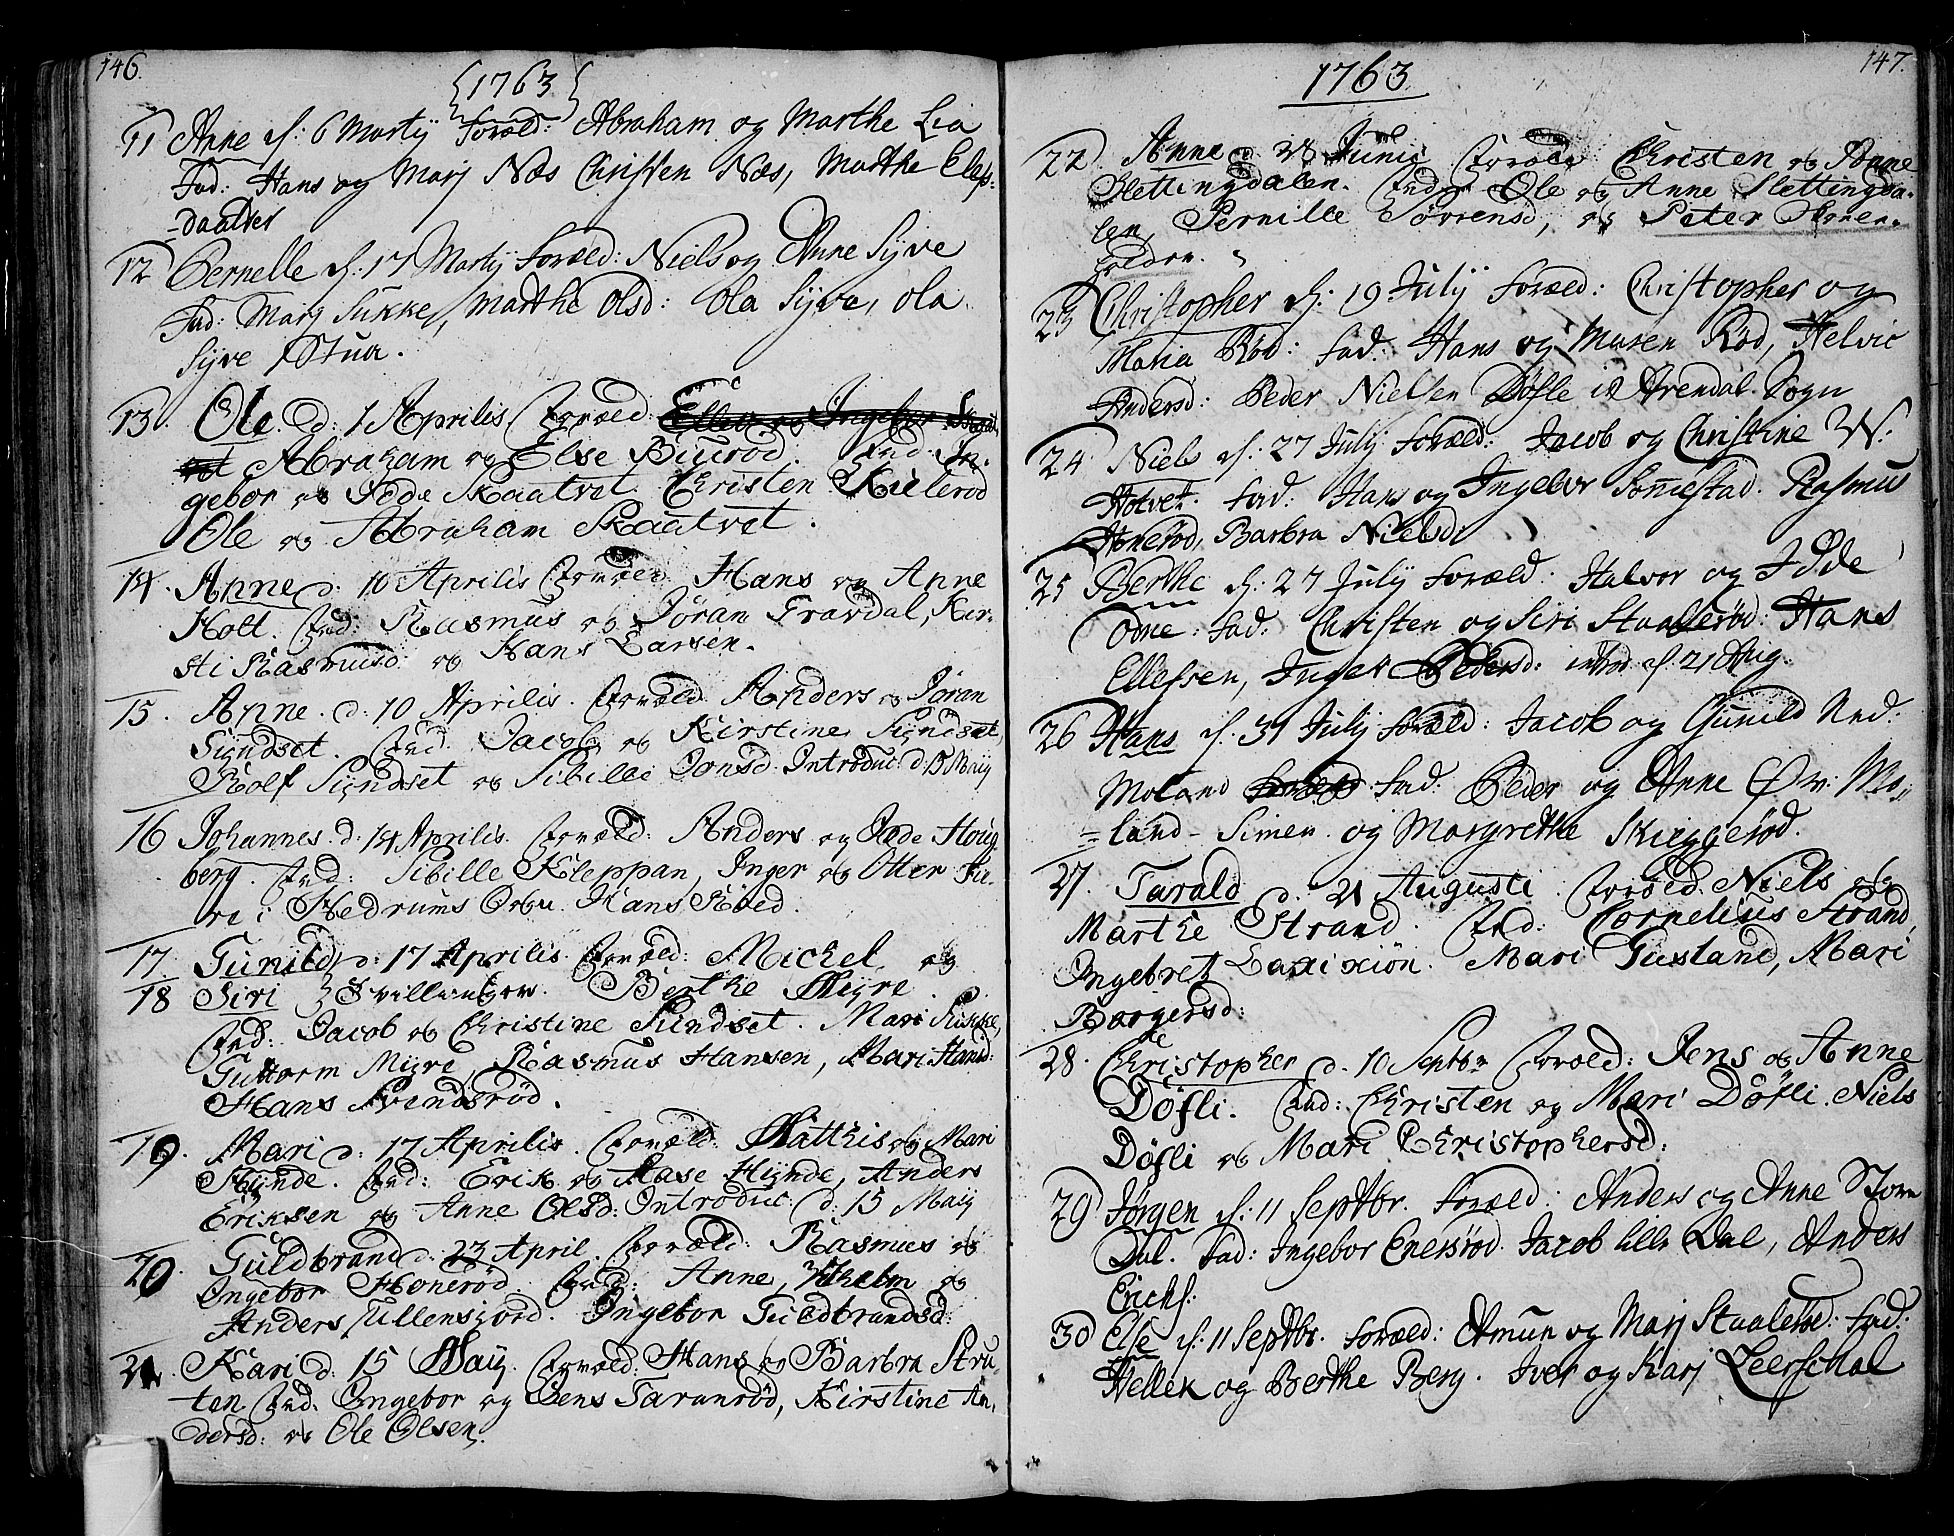 146.
{1763}
11 Anne d: 6 Martij Foræld: Abraham og Marthe Lia
Fad: Hans og Marj Næs Christen Næs, Marthe Elefs:
-daatter
12 Pernelle d: 17 Martij Foræld: Niels og Anne Syve
Fad: Marj Sukke, Marthe Olsd: Ola Syve, Ola
Syve i Stua.
13. Ole d: 1 Aprilis Foræld: Ellev og Ingebor
Abraham og Else Buurød. Fad: In-
gebor og Odde Skaatvet. Christen Kielerød
Ole og Abraham Skaatvet.
14. Anne d: 10 Aprilis Foræld: Hans og Anne
Holt. Fad: Rasmus og Jøran Fravdal, Kir-
sti Rasmusd: og Hans Larsen.
15. Anne. d: 10 Aprilis. Foræld: Anders og Jøran
Sundset. Fad: Jacob og Kirstine Sundset,
Rolf Sundset og Sibille Jonsd: Introduc: d: 15 Maij
16 Johannes d: 14 Aprilis. Foræld: Anders og Odde Houg
berg. Fad: Sibille Kleppan, Inger og Otter Fu-
re i Hedrums Hans Røed.
17. Gunild d: 17 Aprilis. Foræld: Michel og
18 Siri } Tvillinger. Berthe Myre.
Fad: Jacob og Christine Sundset. Mari Sukke,
Guttorm Myre, Rasmus Hansen, Mari Hansd:
Hans Svindsrød.
19. Mari d: 17 Aprilis. Foræld: Matthis og Mari
Hynde. Fad: Erik og Aase Hynde, Anders
Eriksen og Anne Olsd: Introduc: d: 15 Maij
20. Guldbrand d: 23 April. Foræld: Rasmus og
Ingebor Honerød. Fad: Anne, Vilhelm og
Anders Tullensiord. Ingebor Guldbrandsd:
21. Kari d: 15 Maij. Foræld: Hans og Barbra Stru-
ten Fad: Ingebor og Jens Taranrød, Kirstine An-
dersd: og Ole Olsen.
147.
1763
22 Anne d: Junij Foræld Christen og Anne
Slettingdalen. Fad: Ole og Anne Slettingda-
len, Pernille Sørensd, og Peter Skoeu-
holder.
23 Christopher d: 19 Julij Foræld: Christopher og
Maria Rød: Fad: Hans og Maren Rød, Helvic
Andersd: Peder Nielsen Døfle i Arendal Sogn
24 Niels d: 27 Julij Foræld: Jacob og Christine W:
Holvet. Fad: Hans og Ingebor Somestad. Rasmus
Honerød, Barbra Nielsd:
25 Berthe d: 27 Julij Foræld: Halvor og Odde
Odne: Fad: Christen og Siri Staalerød: Hans
Ellefsen, Inger Pedersd: introd d: 21 Aug:
26 Hans d: 31 Julij Foræld: Jacob og Gunild Ned:
Moland Fad: Peder og Anne Øv: Mo,
=land- Simen og Margrethe Skieggerød.
27. Tarald d. 21 Augusti Foræld: Niels og
Marthe Strand. Fad: Cornelius Strand,
Ingebret Mari Gusland, Mari
Borgersd:
28. Christopher d. 10 Septbr Foræld: Jens og Anne
Døfli. Fad: Christen og Mari Døfli. Niels
Døfli og Mari Christophersd:
29 Jørgen d: 11 Septbr. Foræld: Anders og Anne Store
Dal. Fad: Ingebor Enersrød. Jacob lille Dal, Anders
Erichs:
30 Else d: 11 Septbr. Foræld: Amun og Marj Staalerød: Fad:
Hellek og Berthe Berg. Iver og Karj Leerschal